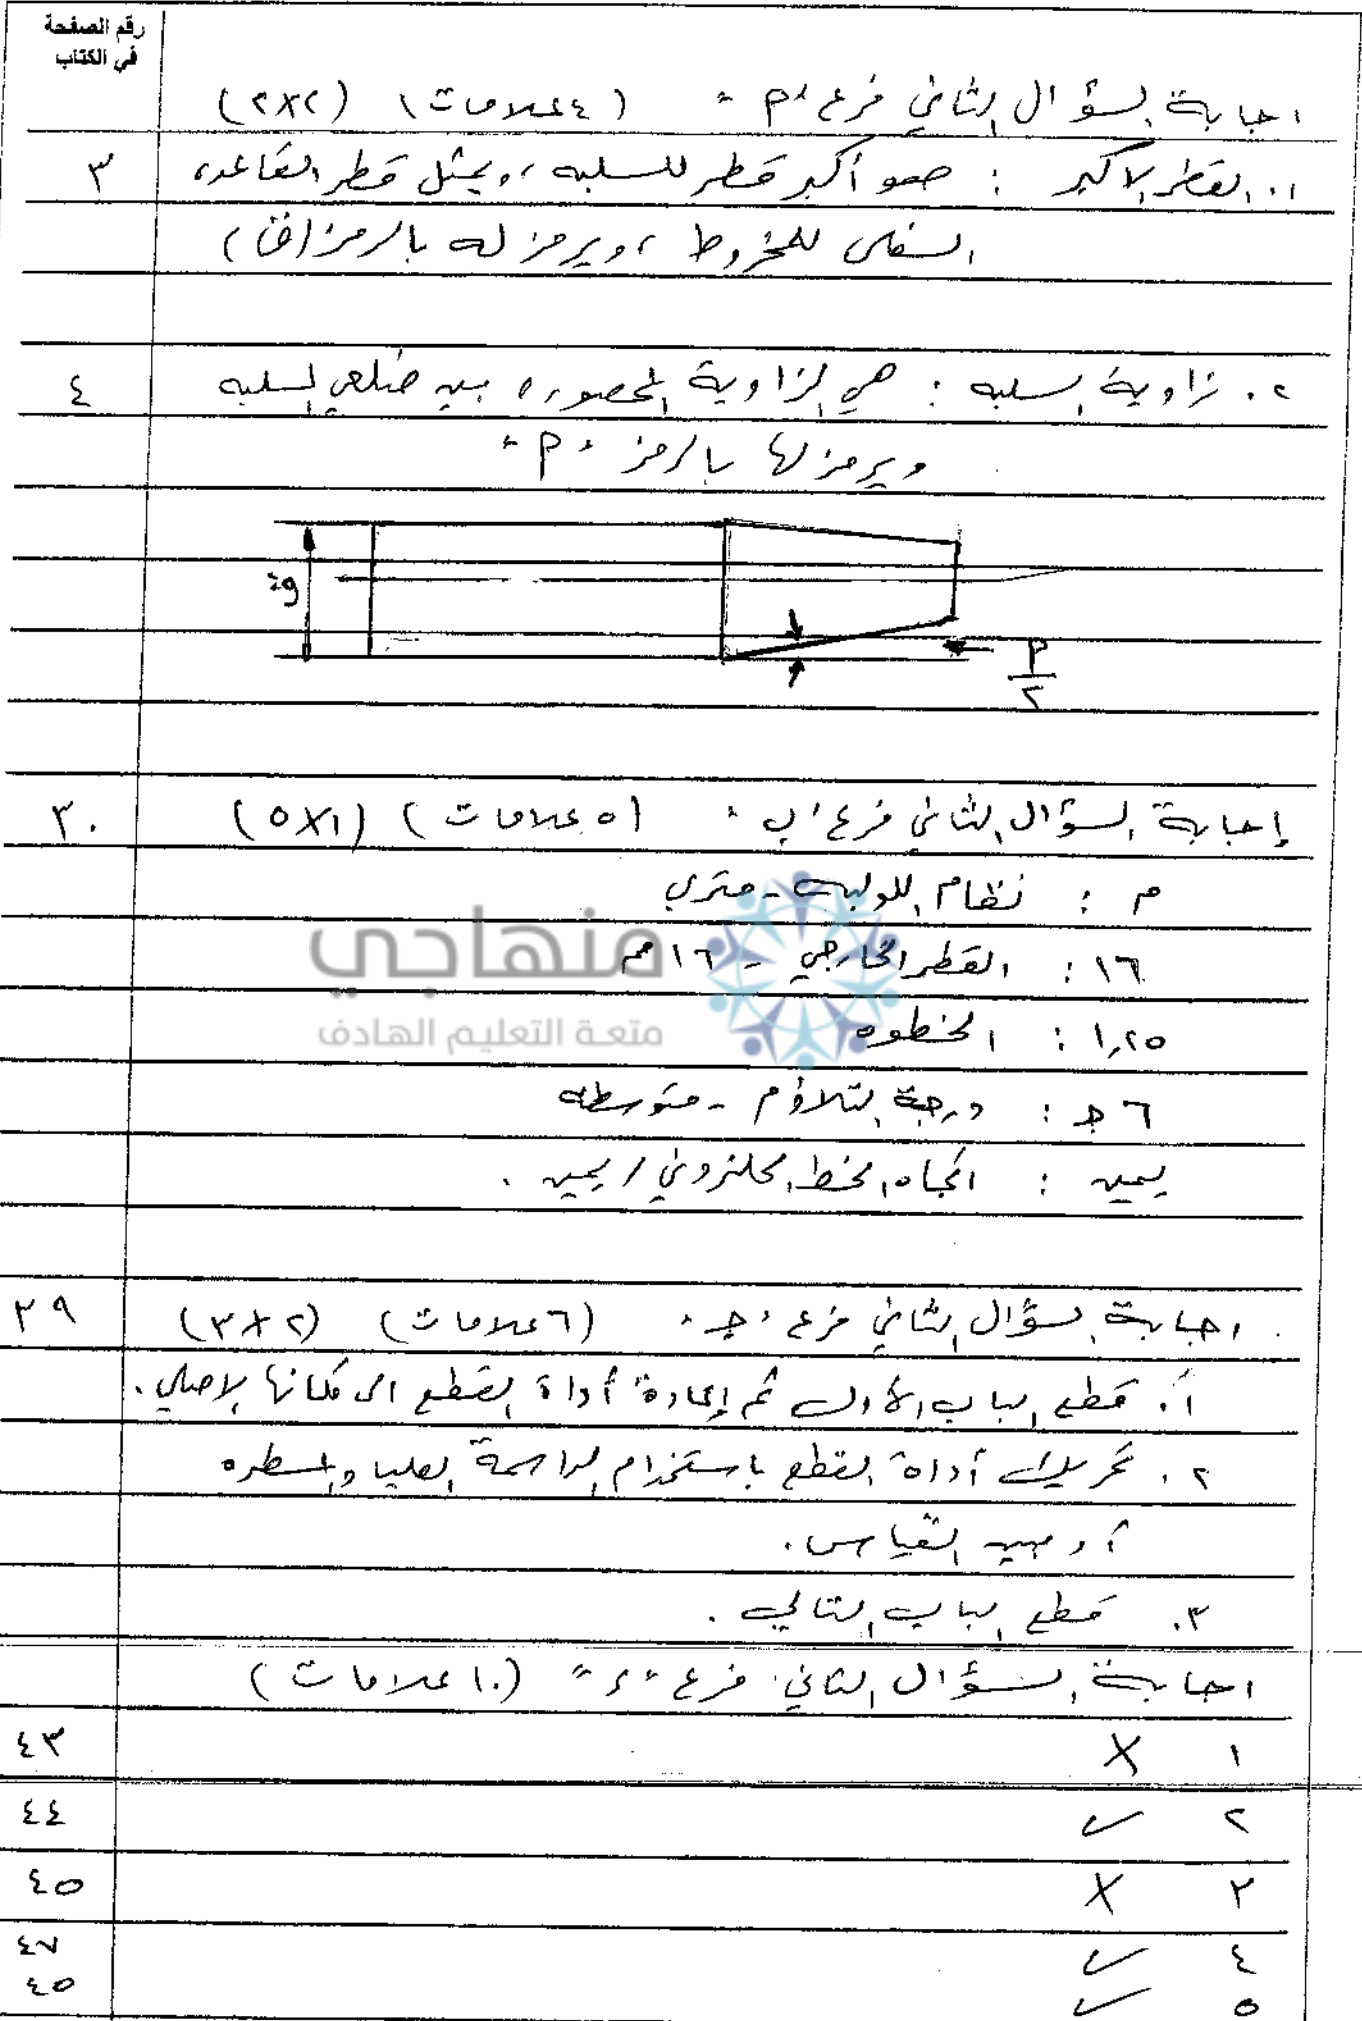 رقم الصفحة
في الكتاب
اجابة السؤال الثاني فرع "أ" (٤ علامات) (٢×٢)
١. القطر الاكبر : هو أكبر قطر للسلبه ، ويمثل قطر القاعده ٣
السفلى للمخروط ، ويرمز له بالرمز (ق)
٢. زاوية السلبه : هي الزاوية المحصوره بين ضلعي السلبه ٤
ويرمز لها بالرمز "أ"
ق
أ
٢
إجابة السؤال الثاني فرع "ب" (٥ علامات) (٥×١) ٣٠
م : نظام اللولب - متري
١٦ : القطر الخارجي - ١٦ مم
١,٢٥ : الخطوه
٦ج : درجة التلاؤم - متوسطه
يمين : اتجاه الخط الحلزوني / يمين .
منهاجي
متعة التعليم الهادف
اجابة السؤال الثاني فرع "ج" (٦ علامات) (٣×٢) ٣٩
١. قطع الباب الأول ثم إعادة أداة القطع الى مكانها الاصلي .
٢. تحريك أداة القطع باستخدام الراسمة العليا والمسطره
أو مبين القياس .
٣. قطع الباب التالي .
اجابة السؤال الثاني فرع "د" (١٠ علامات)
١ X ٤٣
٢ ✓ ٤٤
٣ X ٤٥
٤ ✓ ٤٧
٥ ✓ ٤٥